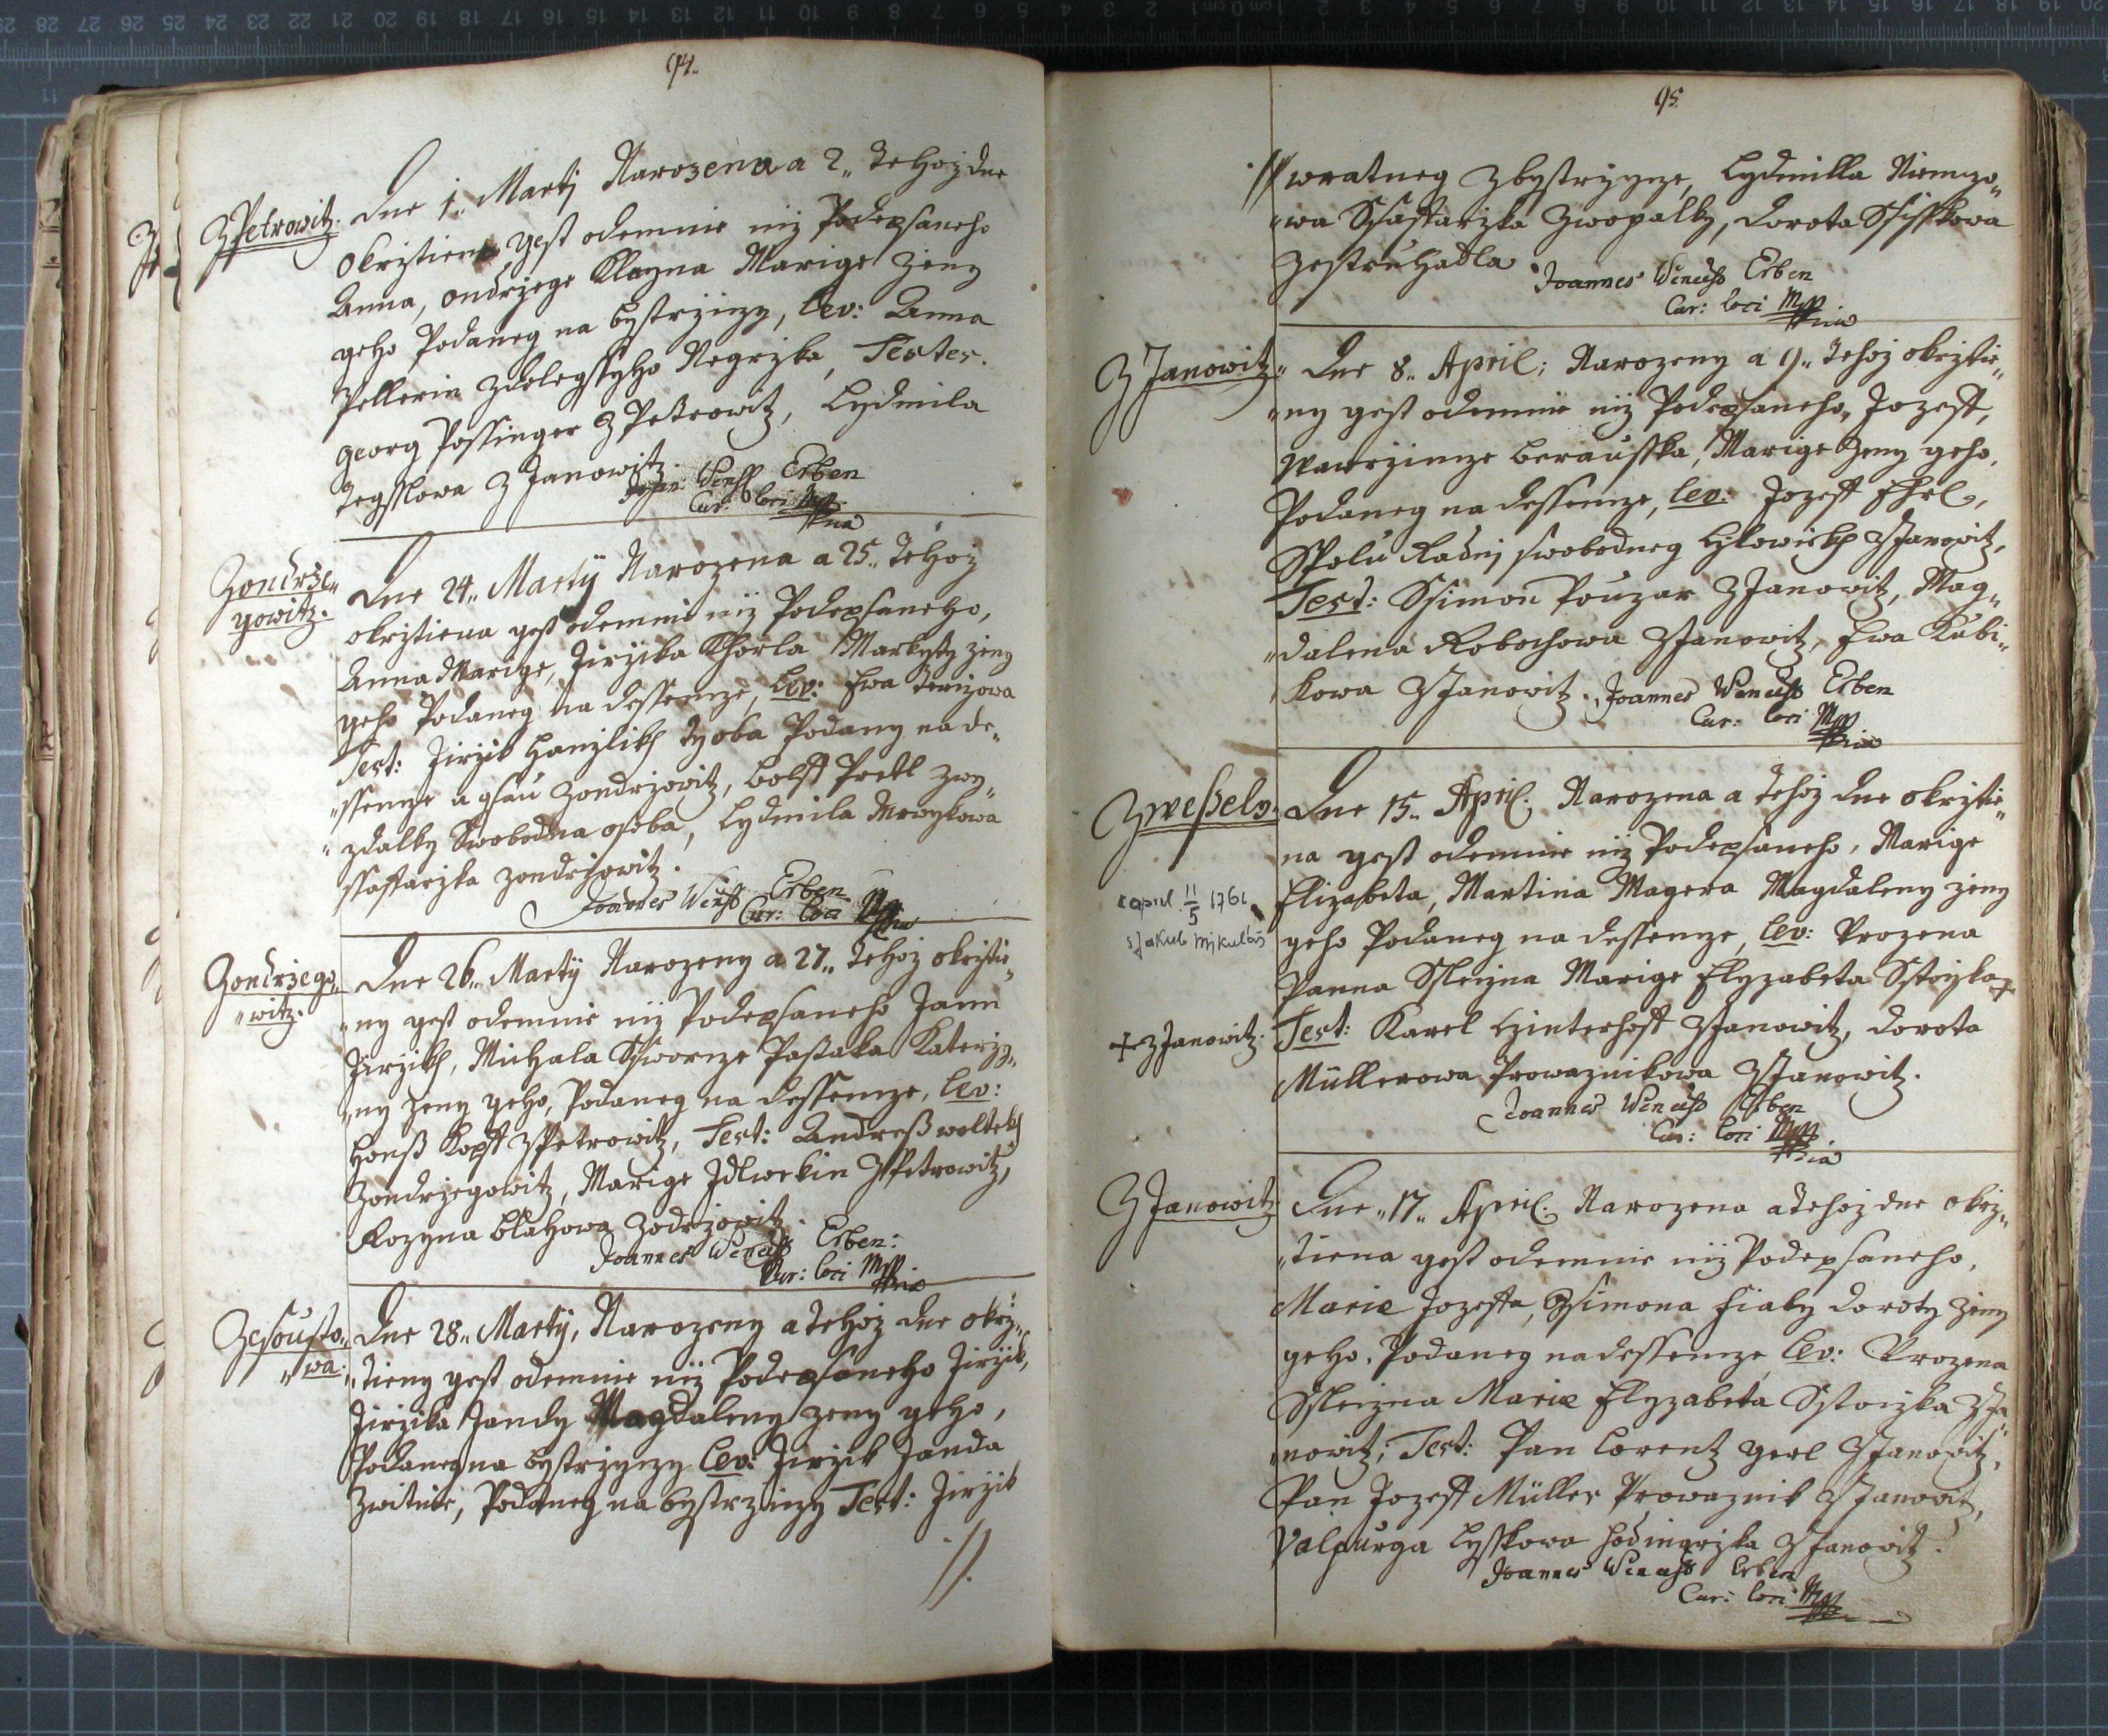 94.
Z Petrowitz. Dne 1. Martij Narozena a 2. tehoz dne
okrztiena gest odemnie niz Podepsaneho
Anna, Ondrzege Klayna Marige zeny
geho Podaneg na Bystrziczy, Lev: Anna
Pellerin zdolegssyho Negrzka, Testes.
Georg Possinger z Petrowitz, Lydmila
z Janowitz.
Joan: Wenss Erben
Cur: loci Mpp
Zondrze„
gowitz.
Dne 24. Martij Narozena a 25. tehoz
okrztiena gest odemnie niz Podepsaneho,
Anna Marige, Jirzika Khorla Markyty zeny
geho Podaneg na dessenicze, Lev: Ewa
Test: Jirzik Hanzlik ty oba Podany na de„
„ssenicze a gsau Zondrzowitz, Bolff Pretl zwy„
„zdalky Swobodna osoba, Lydmila
ssaffarzka Zondrzowitz.
Joannes Wenss Erben
Cur: loci Mpp
Zondrzego„
„witz.
Dne 26. Martij Narozeny a 27. tehoz okrztie„
„ny gest odemnie niz Podepsaneho Jann
Jirzik, Michala Sswornze Pastaka Katerzy„
„ny zeny geho, Podaneg na dessenicze, Lev:
Hanss Kopff z Petrowitz, Test: Andress woltek
Zondrzegowitz, Marige z Petrowitz,
Rozyna Blahowa Zodrzowitz.
Joannes Wencess Erben:
Cur: loci Mpp
Zesousto„
„wa:
Dne 28. Martij, Narozeny a tehoz dne okrz„
„tieny gest odemnie niz Podepsaneho Jirzik,
Jirzika Jandy Magdaleny zeny geho,
Podaneg na Bystrziczy Lev: Jirzik Janda
zwitnie, Podaneg na bystrziczy Test: Jirzik
//.
95.
// wratneg zbystrzyze, Lydmilla Niemczo„
„wa Ssaffarzka zwopalky, Dorota Ssisskowa
zestruhadla Joannes Wencess Erben
Cur: loci Mpp
Z Janowitz. Dne 8. April: Narozeny a 9. tehoz okrztie„
„ny gest odemnie niz Podepsaneho, Jozeff,
Wawrzincze Berausska, Marige zeny geho,
Podaneg na dessenicze, Lev: Jozeff Ehrl,
Spolu Radnj swobodneg z Janowitz,
Test: Ssimon Pouzar z Janowitz, Mag„
„dalena Robochowa z Janowitz, Ewa Kubi„
kowa z Janowitz. Joannes Wencess Erben
Cur: loci Mpp
Zwessely. Dne 15. April. Narozena a tehoz dne okrztie„
na gest odemnie niz Podepsaneho, Marige
Elizabeta, Martina Magera Magdaleny zeny
geho Podaneg na dessenicze, Lev: Urozena
Panna Slerzna Marige Elyzabeta +
Test: Karel Hinterhoff z Janowitz, Dorota
Müllerowa Prowaznikowa z Janowitz.
Joannes Wencess Erben
Cur: loci Mpp
11/5 1761
s Jakub Mikulas
+ z Janowitz.
Z Janowitz Dne 17. April. Narozena a tehoz dne okrz„
„tiena gest odemnie niz Podepsaneho,
Marie Jozeffa, Ssimona Fialy Doroty zeny
geho, Podaneg na dessenicze, Lev: Urozena
Slerzna Marie Elyzabeta z Ja„
„nowitz; Test: Pan Lorentz Gerl z Janowitz,
Pan Jozeff Müller Prowaznik z Janowitz,
Valpurga Lysskowa Hodinarzka z Janowitz.
Joannes Wencess Erben
Cur: loci Mpp